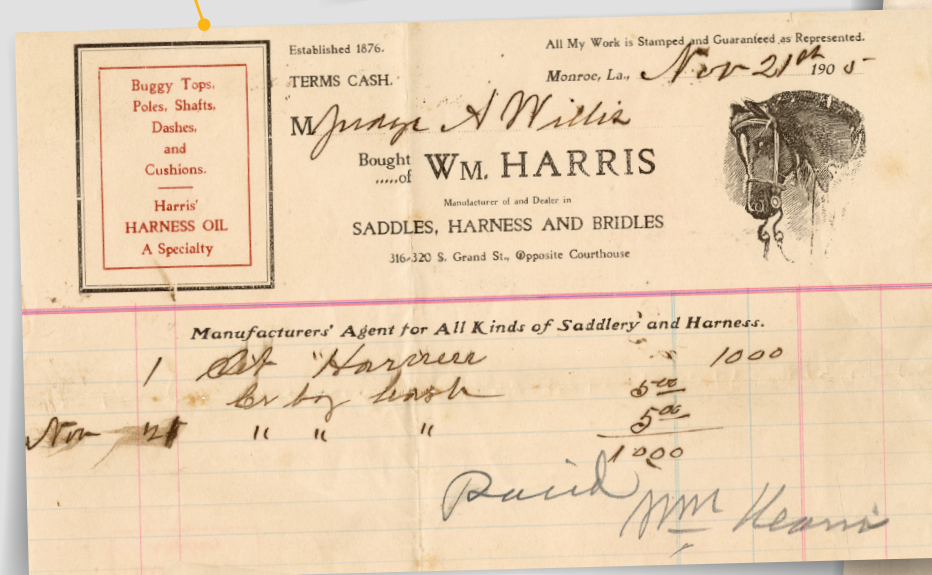 Buggy Tops,
Poles, Shafts,
Dashes,
and
Cushions.
Harris'
HARNESS OIL
A Specialty
Established 1876.
All My Work is Stamped and Guaranteed as Represented.
TERMS CASH.
Monroe, La., Nov 21st 1905
M Judge A Willis
Bought
.....of WM. HARRIS
Manufacturer of and Dealer in
SADDLES, HARNESS AND BRIDLES
316-320 S. Grand St., Opposite Courthouse
Manufacturers' Agent for All Kinds of Saddlery and Harness.
1 Set Harness 1000
Cr by Cash 5 00
Nov 21 " " " 5 00
1000
Paid
Wm